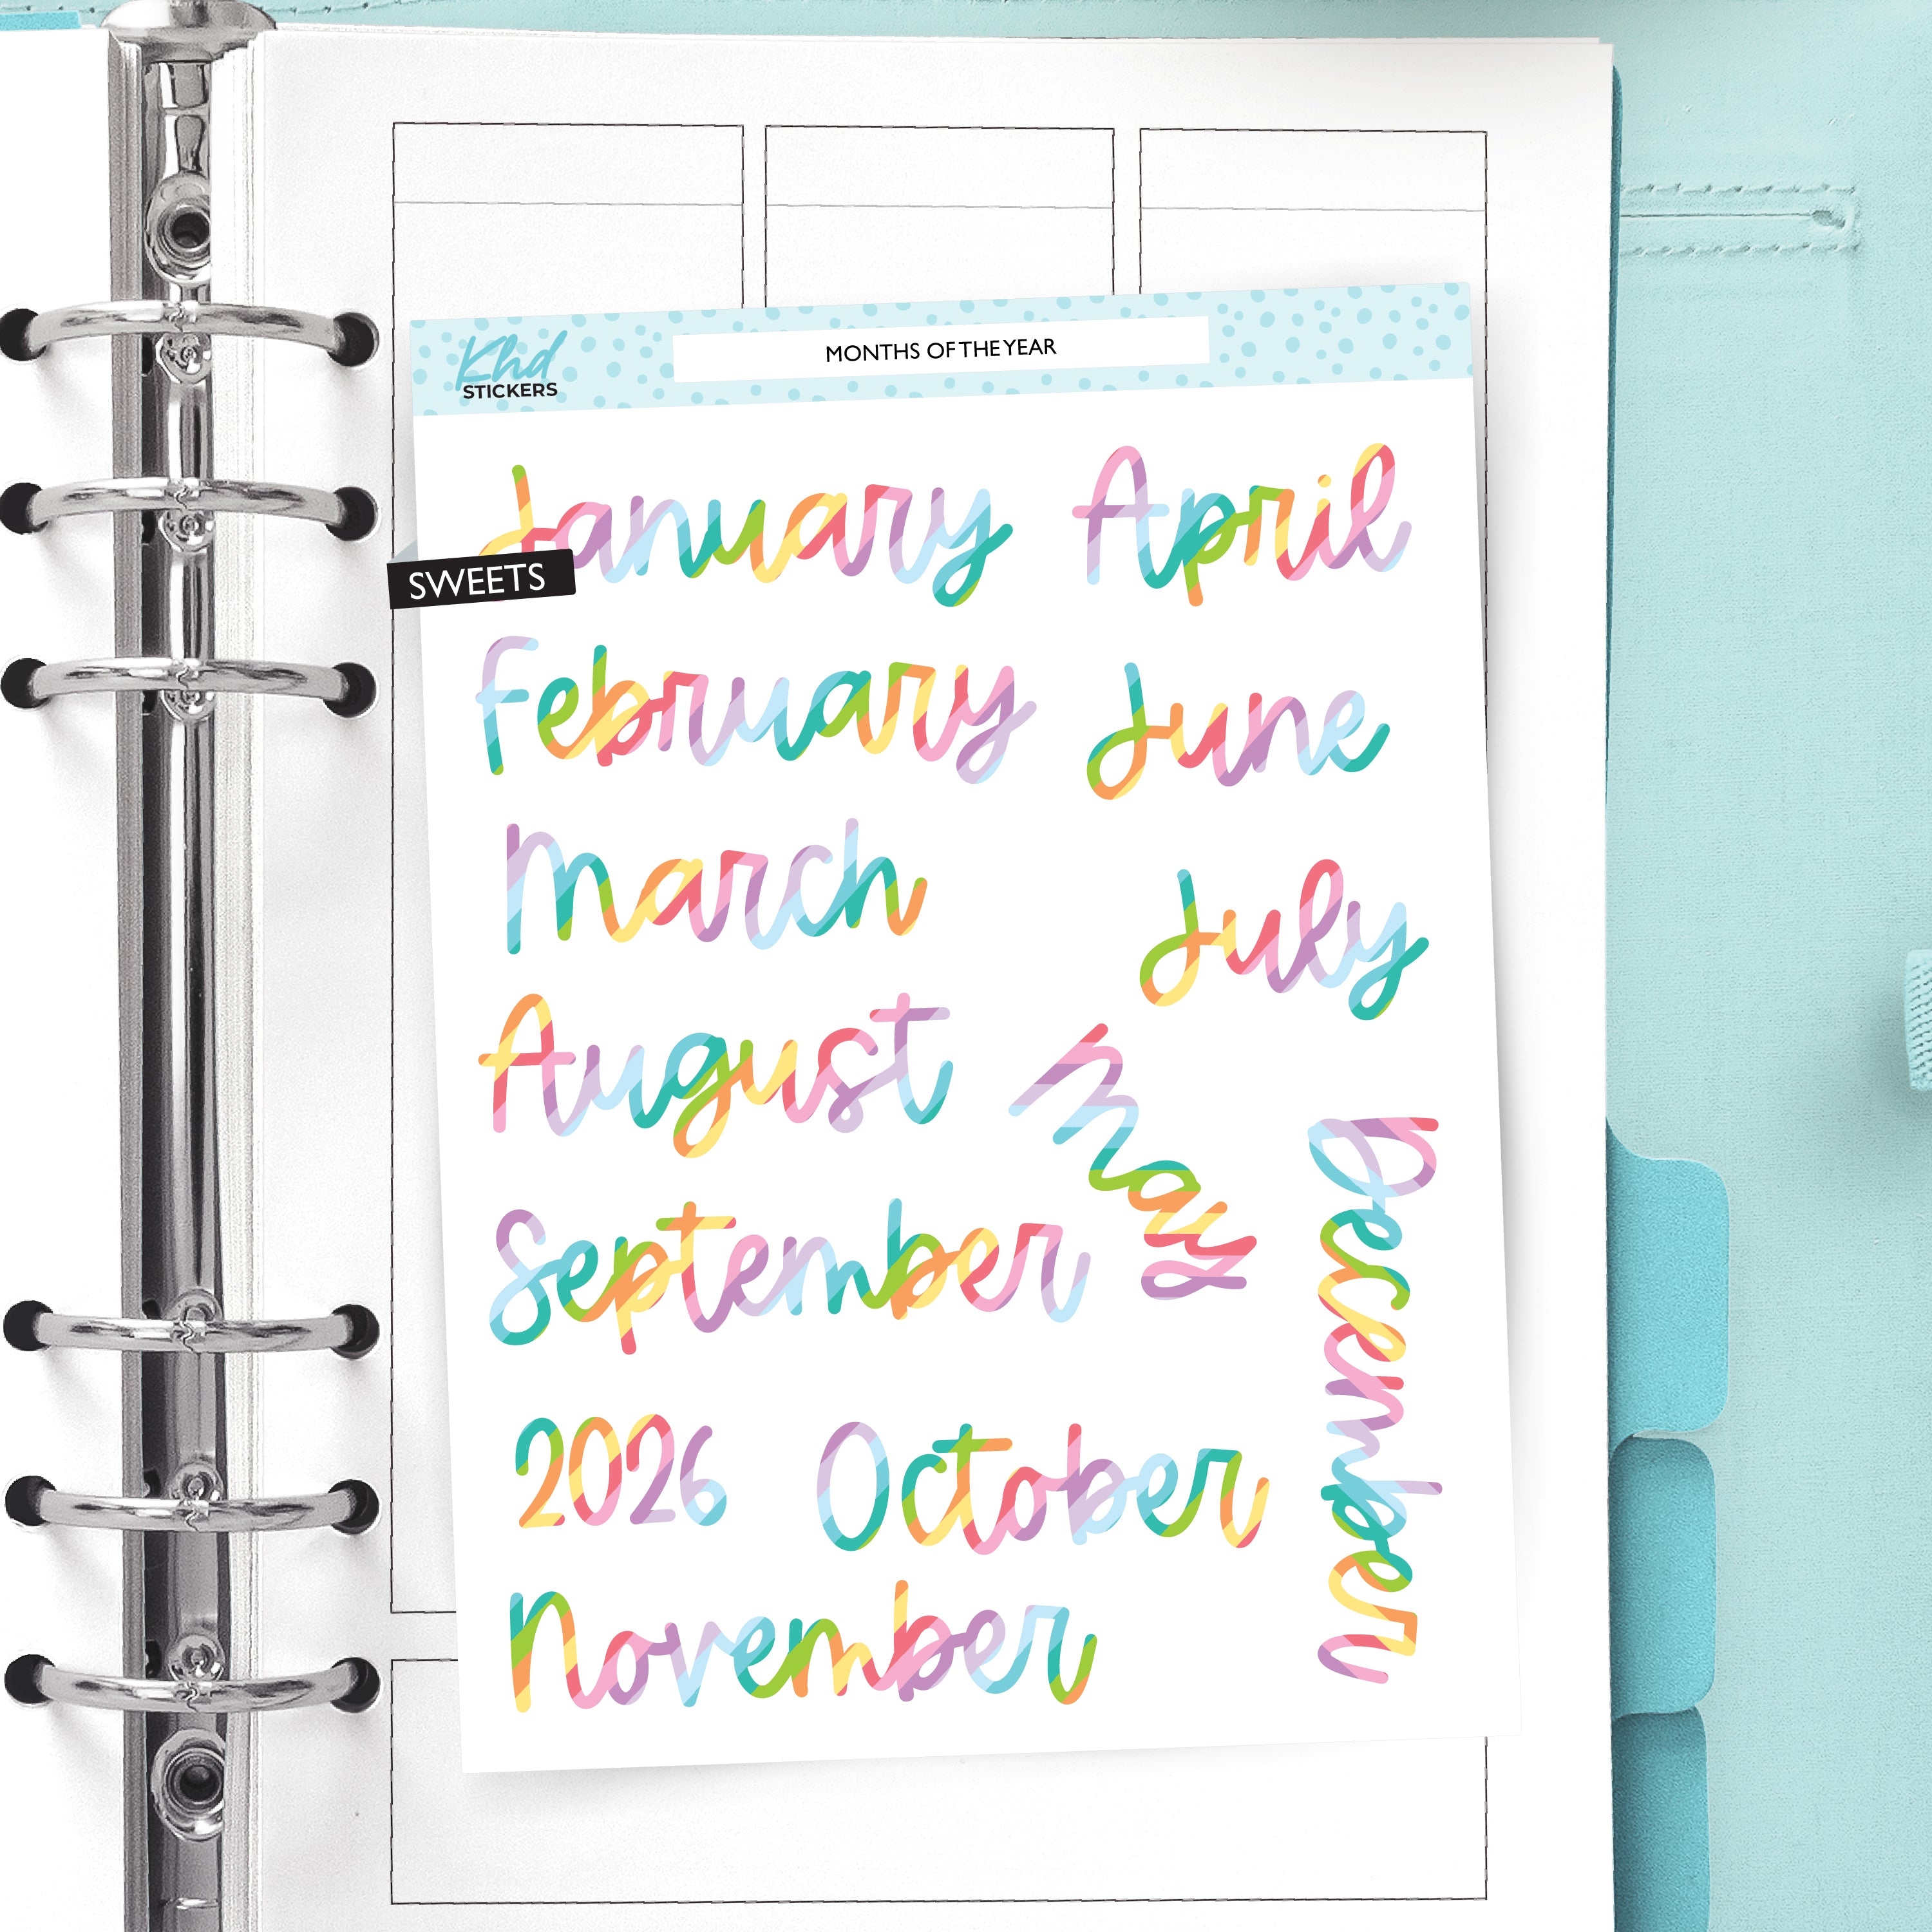 Khd
STICKERS
MONTHS OF THE YEAR
January
April
SWEETS
February
June
March
July
August
May
September
December
2026
October
November